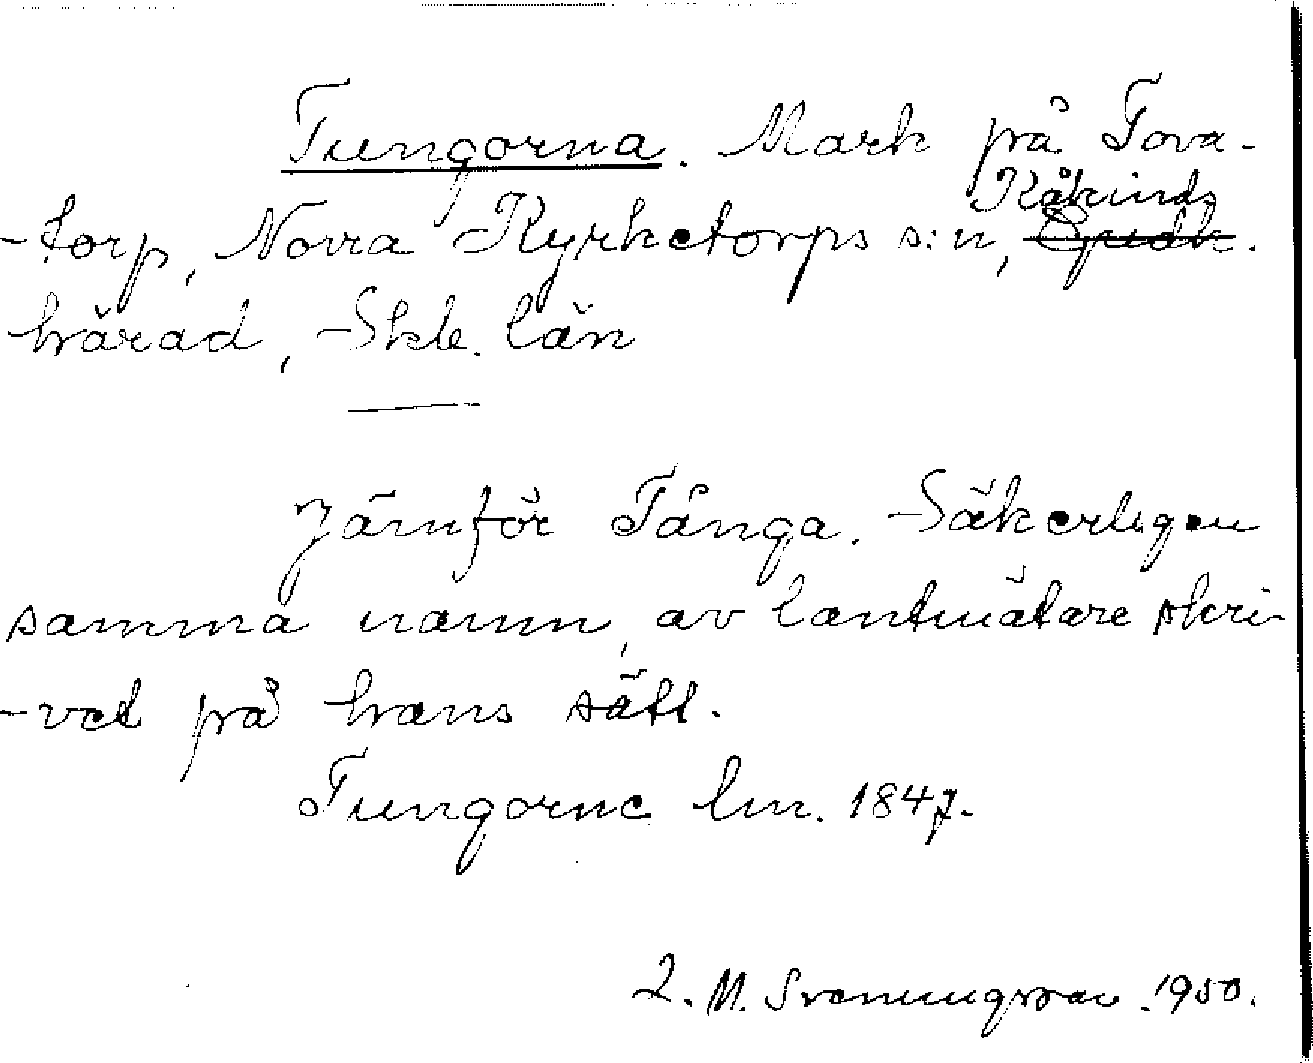 Tungorna. Mark på Tova-
-torp, Norra Kyrketorps s:n, Kåkinds
härad, Skb. län
Jämför Tånga. Säkerligen
samma namn, av lantmätare skri-
-vet på hans sätt.
Tungorne lm. 1847.
M. Svenungsson 1950.